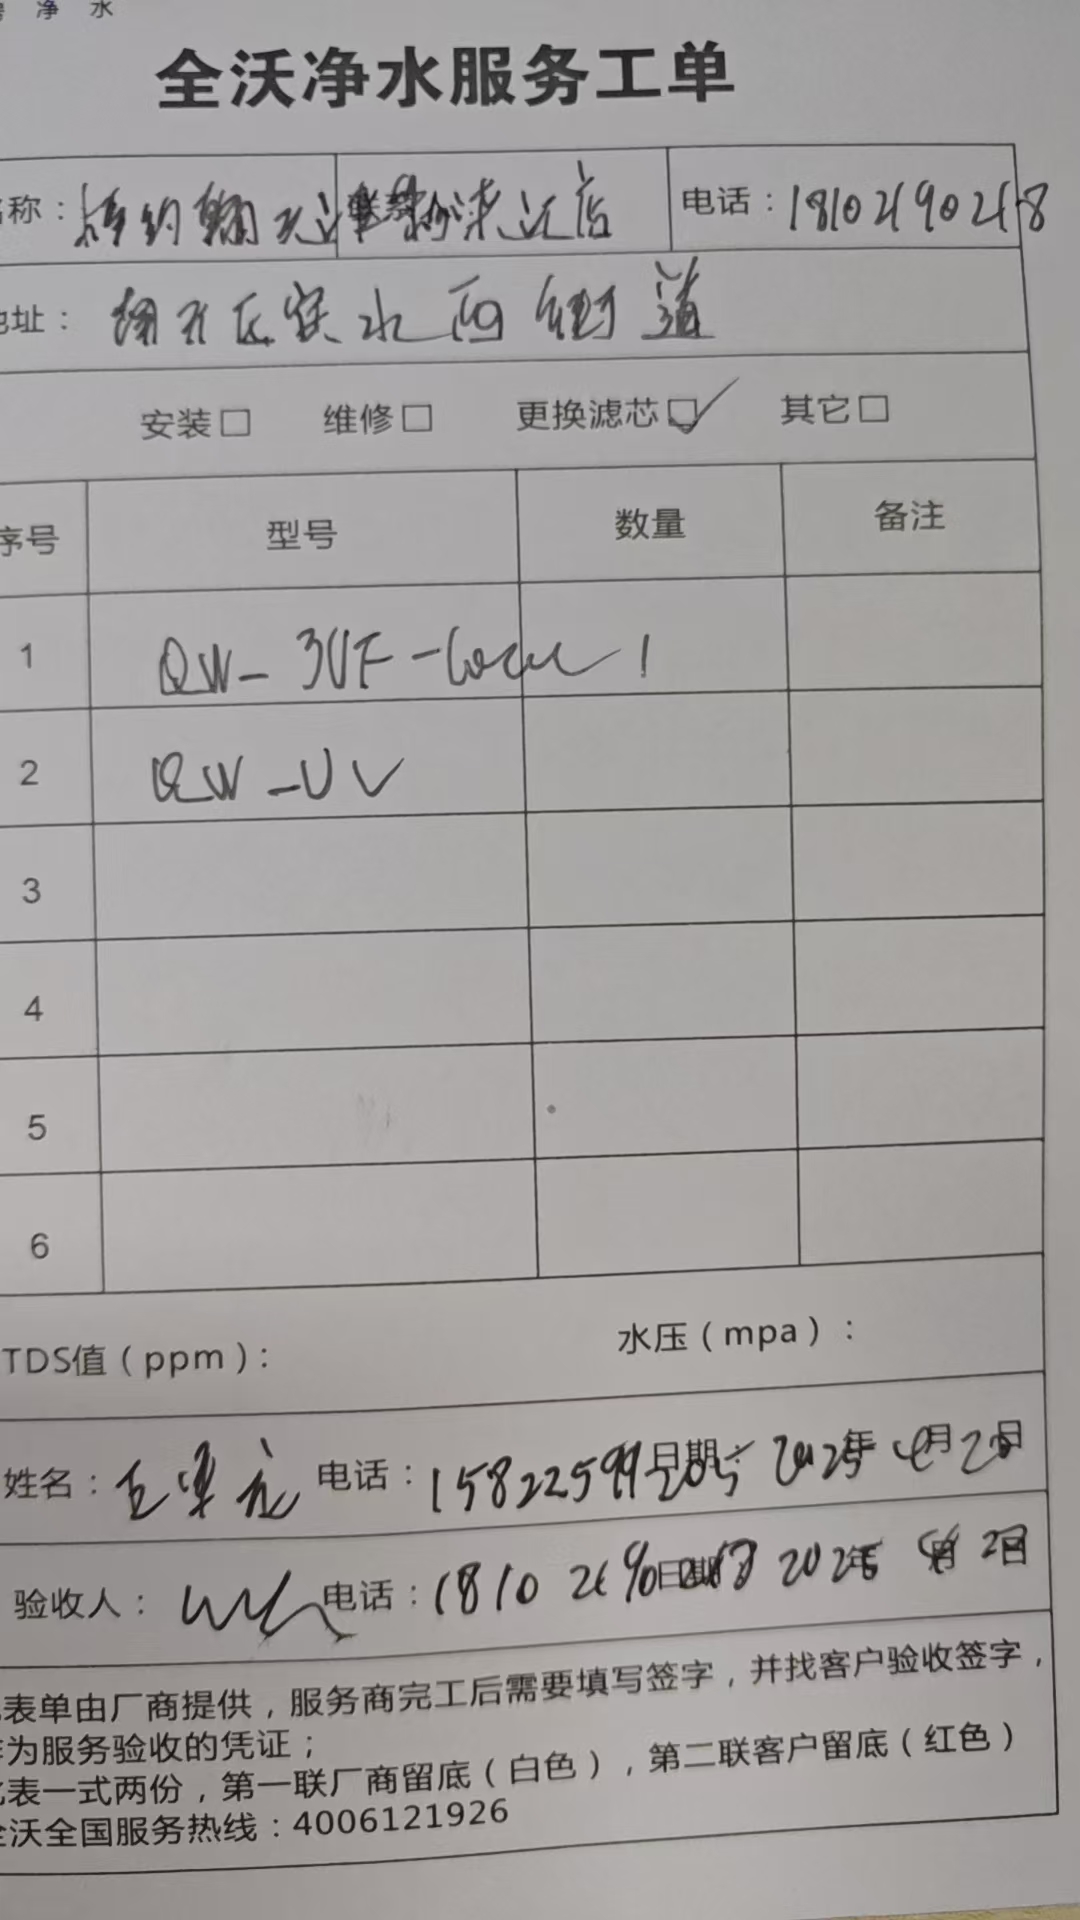 净 水
全沃净水服务工单
称： 棒约翰天津 店 电话：18102190218
地址： 水西街道
安装□ 维修□ 更换滤芯□✓ 其它□
序号 型号 数量 备注
1 QW-3UF- 1
2 QW-UV
3
4
5
6
TDS值（ppm）： 水压（mpa）：
姓名： 王 电话：15822599205 日期：2025年4月20日
验收人： 电话：18102190218 日期 2025年4月2日
表单由厂商提供，服务商完工后需要填写签字，并找客户验收签字，
作为服务验收的凭证；
此表一式两份，第一联厂商留底（白色），第二联客户留底（红色）
全沃全国服务热线：4006121926